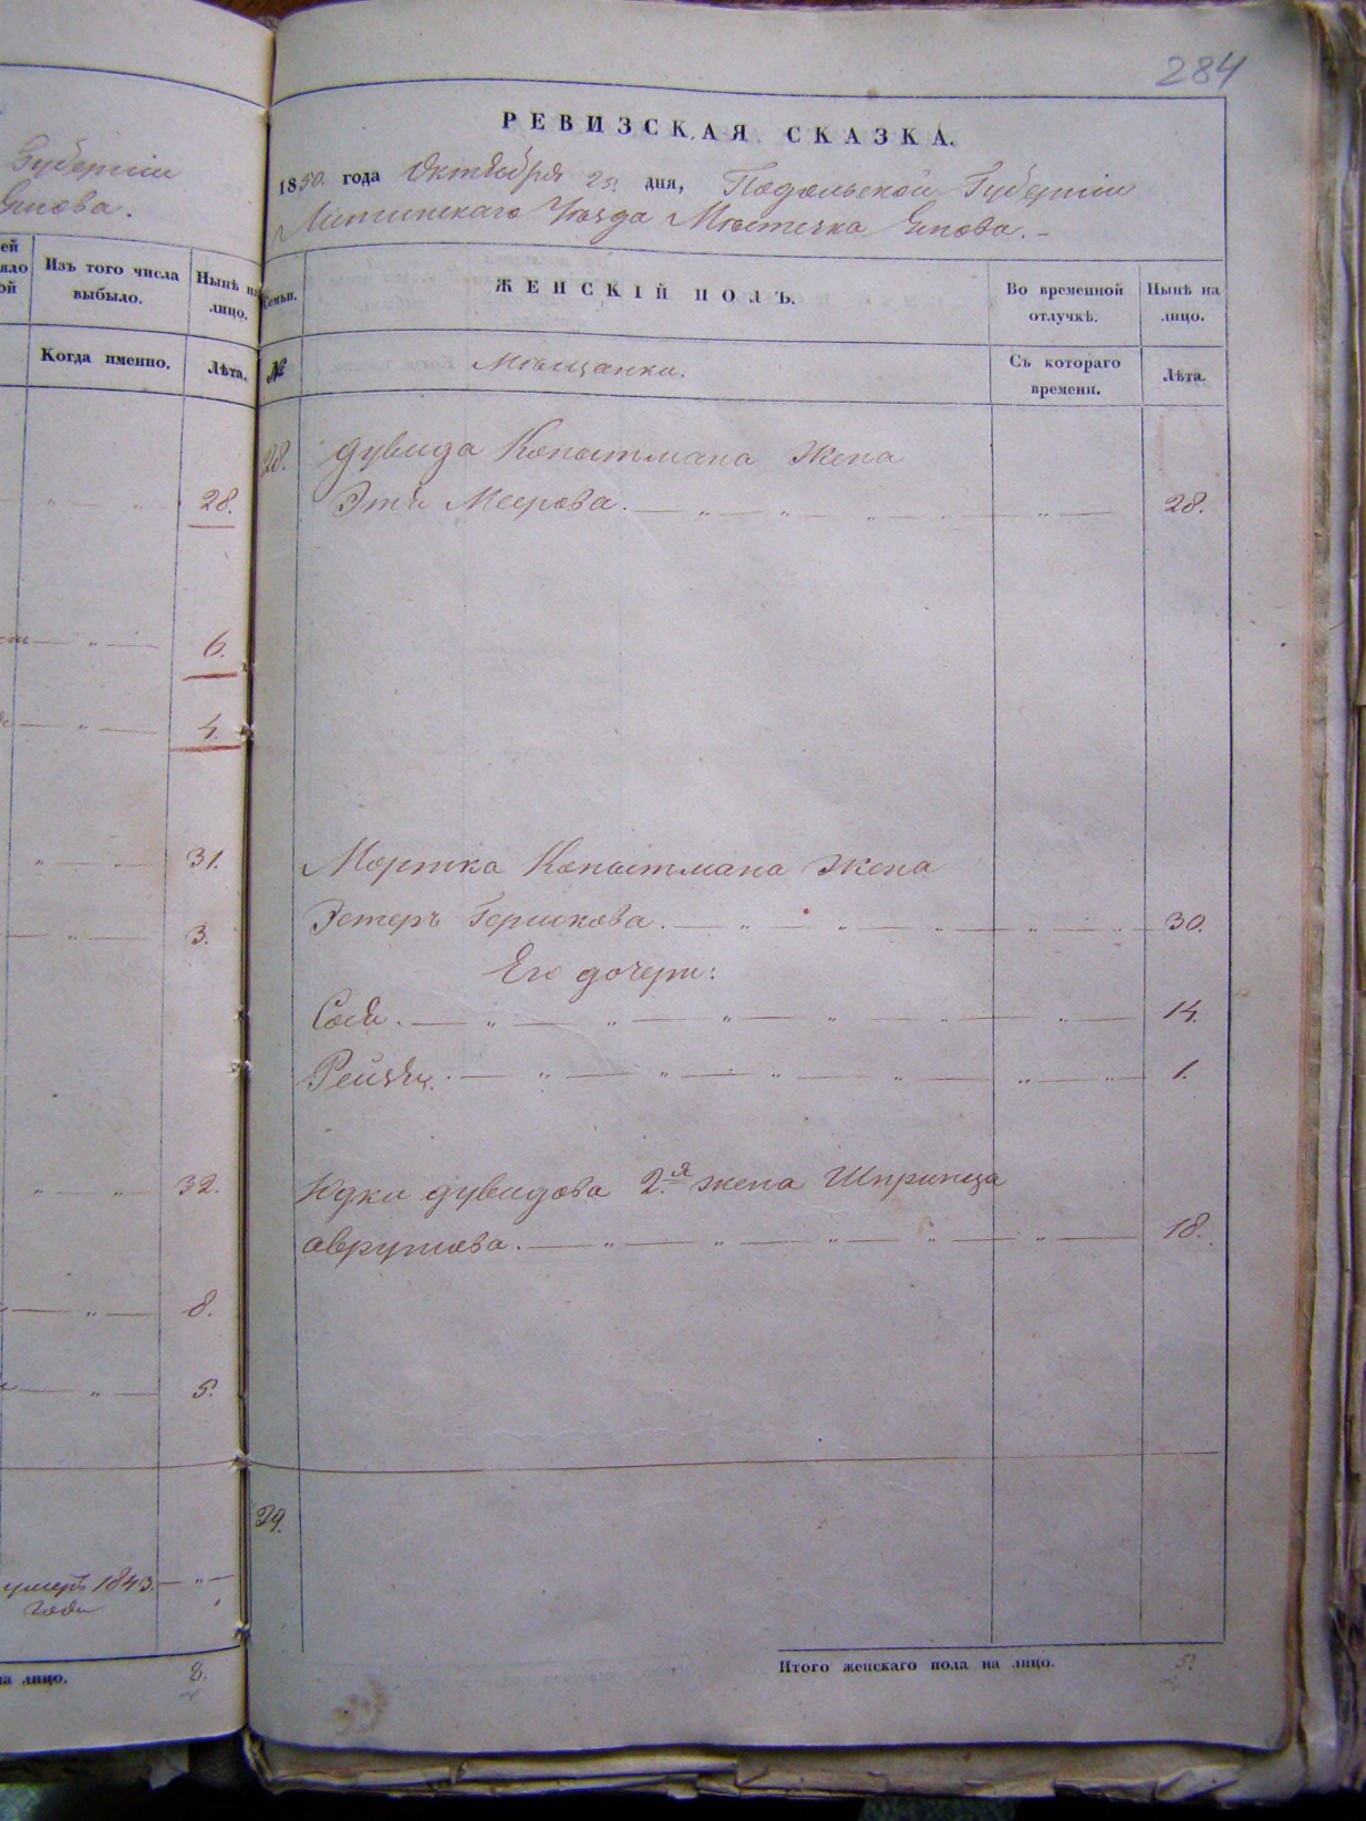 Губерніи
Янова.
Изъ того числа выбыло.
Нынѣ на лицо.
Когда именно.
Лѣта.
28.
6.
4.
31.
3.
32.
8.
5.
умеръ 1843.
года
на лицо.
8.
284
РЕВИЗСКАЯ СКАЗКА.
1850. года Октября 25. дня, Подольской Губерніи
Литинскаго Уѣзда Мѣстечка Янова.
Семьи.
ЖЕНСКІЙ ПОЛЪ.
Во временной отлучкѣ.
Нынѣ на лицо.
№
Мѣщанки.
Съ котораго времени.
Лѣта.
28. Дувида Копытмана жена
Этя Меерова. 28.
Мортка Копытмана жена
Эстеръ Гершкова. 30.
Его дочери:
Сося. 14.
1.
Юдки Дувидова 2.я жена Шпринца
Аврумова. 18.
29.
Итого женскаго пола на лицо. 5.